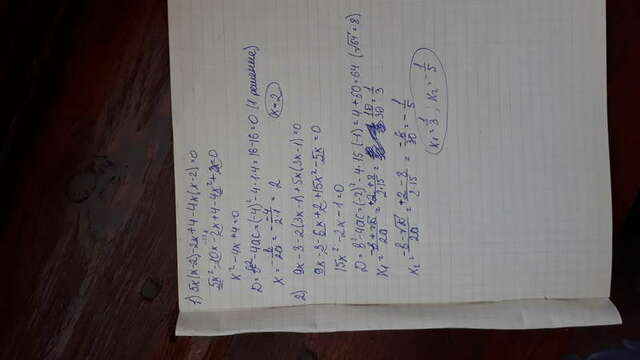 1) 5x(x-2)-2x+4-4x(x-2)=0
5x²-10x-2x+4-4x²+8x=0
x²-4x+4=0
D=b²-4ac=(-4)²-4·1·4=16-16=0 (1 решение)
x=-b/2a=-(-4)/2·1=2 x=2
2) 9x-3-2(3x-1)+5x(3x-1)=0
9x-3-6x+2+15x²-5x=0
15x²-2x-1=0
D=b²-4ac=(-2)²-4·15·(-1)=4+60=64 (√64=8)
x₁=-b+√D/2a=+2+8/2·15=10/30=1/3
x₂=-b-√D/2a=+2-8/2·15=-6/30=-1/5
x₁=1/3; x₂=-1/5